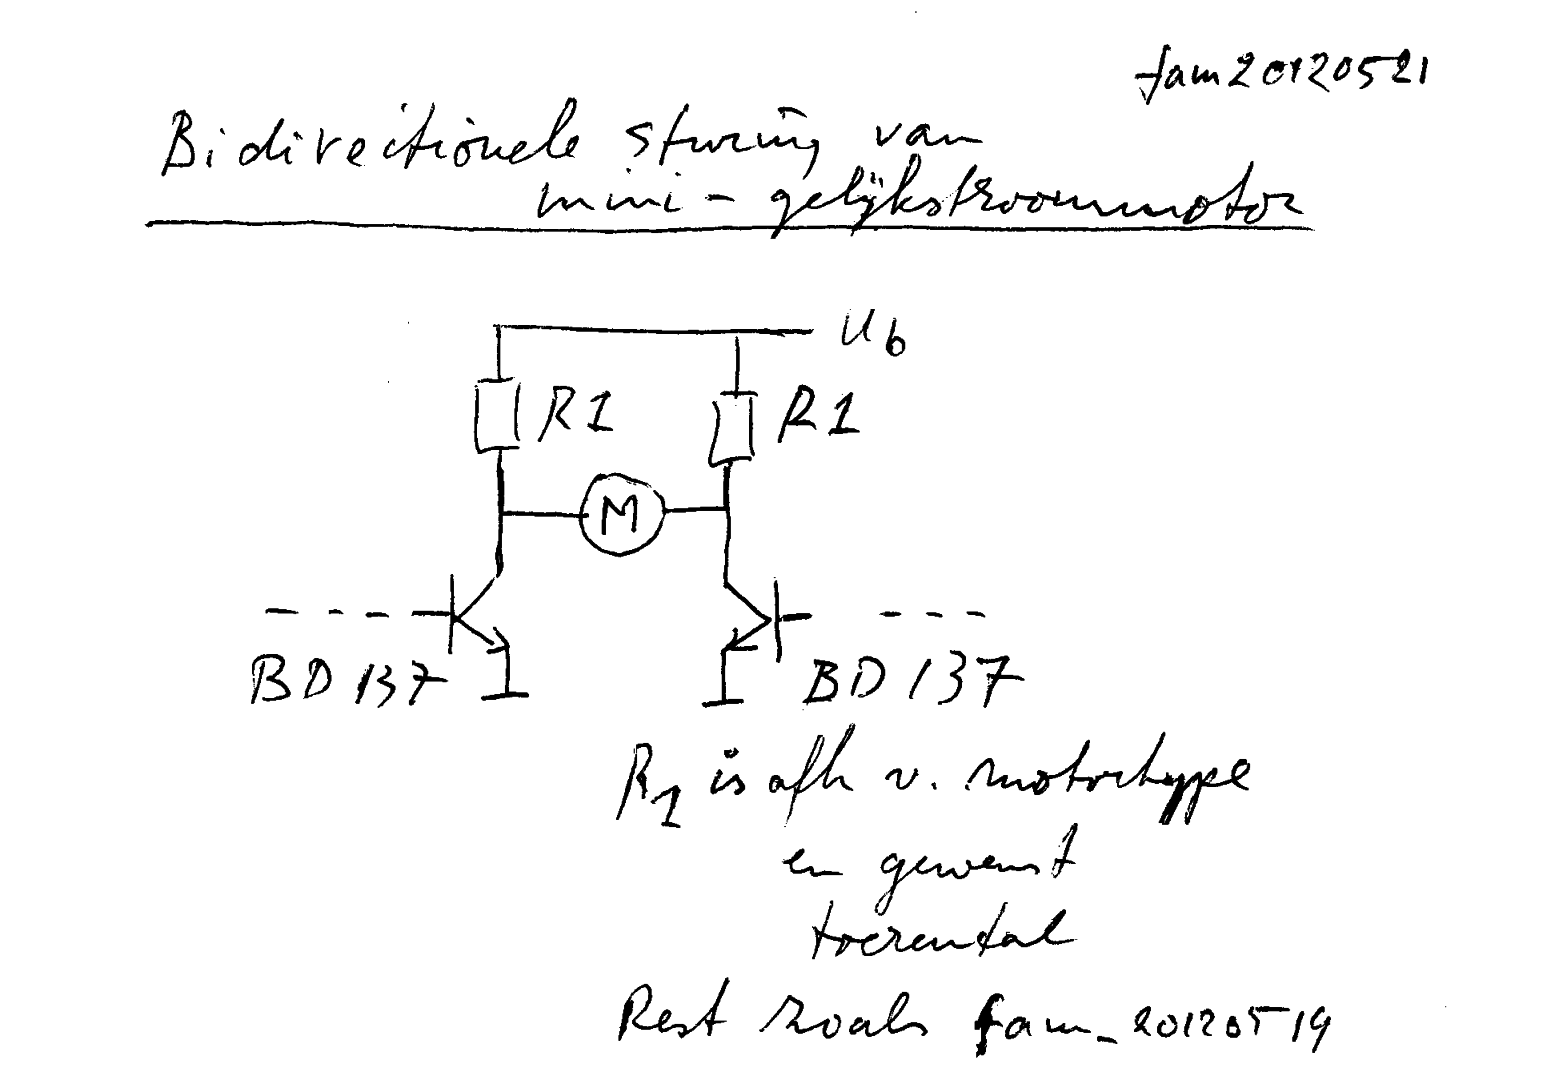 fam20120521
Bidirectionele sturing van
mini-gelijkstroommotor
Ub
R1 R1
M
BD137 BD137
R1 is afh v. motortype
en gewenst
toerental
Rest zoals fam_20120519